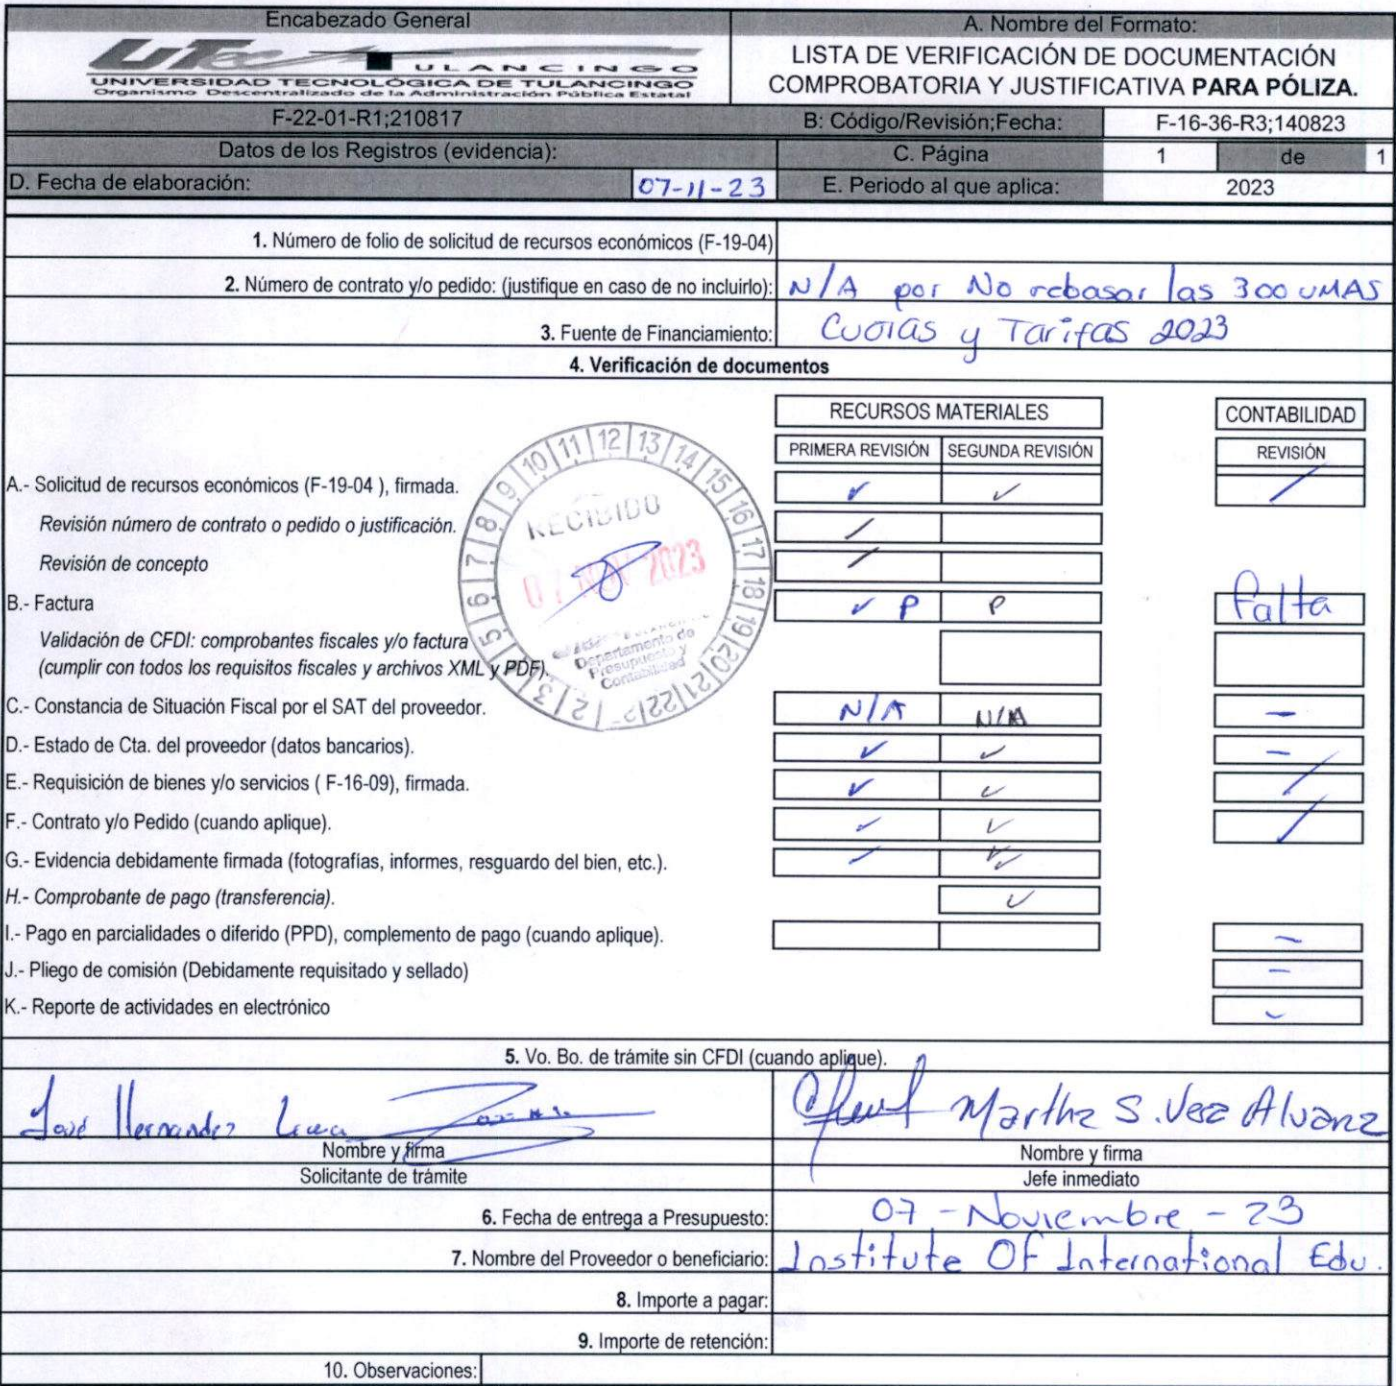 Encabezado General
A. Nombre del Formato:
UTec TULANCINGO
UNIVERSIDAD TECNOLÓGICA DE TULANCINGO
Organismo Descentralizado de la Administración Pública Estatal
LISTA DE VERIFICACIÓN DE DOCUMENTACIÓN
COMPROBATORIA Y JUSTIFICATIVA PARA PÓLIZA.
F-22-01-R1;210817
B: Código/Revisión;Fecha:
F-16-36-R3;140823
Datos de los Registros (evidencia):
C. Página
1 de 1
D. Fecha de elaboración:
07-11-23
E. Periodo al que aplica:
2023
1. Número de folio de solicitud de recursos económicos (F-19-04)
2. Número de contrato y/o pedido: (justifique en caso de no incluirlo):
N/A por No rebasar las 300 UMAS
3. Fuente de Financiamiento:
Cuotas y Tarifas 2023
4. Verificación de documentos
RECURSOS MATERIALES
CONTABILIDAD
PRIMERA REVISIÓN
SEGUNDA REVISIÓN
REVISIÓN
A.- Solicitud de recursos económicos (F-19-04 ), firmada.
✓ ✓ /
Revisión número de contrato o pedido o justificación.
/
Revisión de concepto
/
B.- Factura
✓ P P Falta
Validación de CFDI: comprobantes fiscales y/o factura
(cumplir con todos los requisitos fiscales y archivos XML y PDF).
C.- Constancia de Situación Fiscal por el SAT del proveedor.
N/A N/A –
D.- Estado de Cta. del proveedor (datos bancarios).
✓ ✓ –
E.- Requisición de bienes y/o servicios ( F-16-09), firmada.
✓ ✓ /
F.- Contrato y/o Pedido (cuando aplique).
✓ ✓ /
G.- Evidencia debidamente firmada (fotografías, informes, resguardo del bien, etc.).
✓ ✓
H.- Comprobante de pago (transferencia).
✓
I.- Pago en parcialidades o diferido (PPD), complemento de pago (cuando aplique).
–
J.- Pliego de comisión (Debidamente requisitado y sellado)
–
K.- Reporte de actividades en electrónico
✓
RECIBIDO
07 NOV 2023
Departamento de
Presupuesto y
Contabilidad
5. Vo. Bo. de trámite sin CFDI (cuando aplique).
José Hernandez
Martha S. Vera Alvarez
Nombre y firma
Nombre y firma
Solicitante de trámite
Jefe inmediato
6. Fecha de entrega a Presupuesto:
07 - Noviembre - 23
7. Nombre del Proveedor o beneficiario:
Institute Of International Edu.
8. Importe a pagar:
9. Importe de retención:
10. Observaciones: